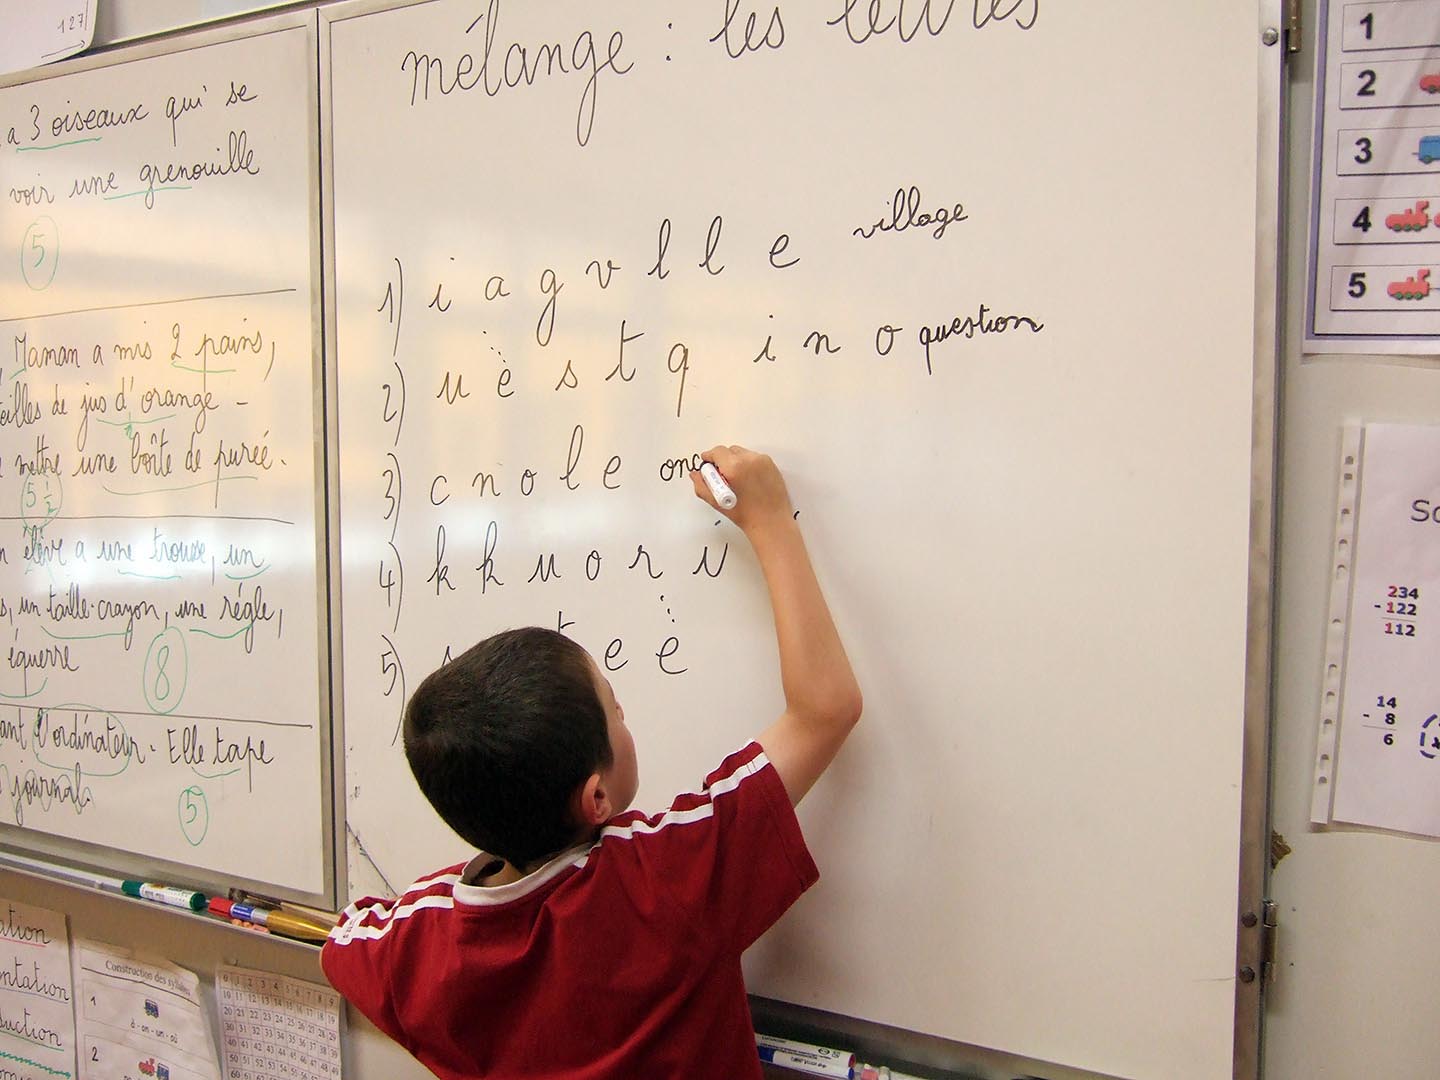 127
a 3 oiseaux qui se
voir une grenouille
5
Maman a mis 2 pains,
eilles de jus d'orange -
mettre une boîte de pureé.
5 1/2
élève a une trousse, un
s, un taille-crayon, une régle,
équerre
8
ant l'ordinateur. Elle tape
journal.
5
mélange : les lettres
1) i a g v l l e village
2) u e s t q i n o question
3) c n o l e onc
4) k k u o r i
5) t e e
1
2
3
4
5
234
- 122
112
14
- 8
6
ation
ntation
uction
Construction des syllabes
1
à - on - un - où
2
0 1 2 3 4 5 6 7 8 9
10 11 12 13 14 15 16 17 18 19
20 21 22 23 24 25 26 27 28 29